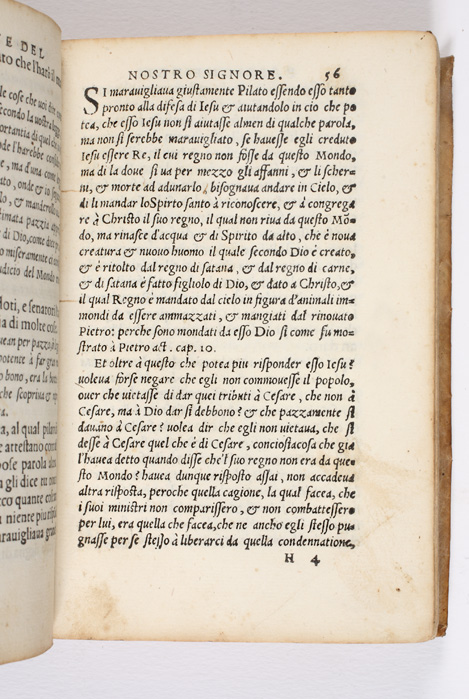 E DEL
NOSTRO SIGNORE. 56
SI maravigliava giustamente Pilato essendo esso tanto
pronto alla difesa di Iesu & aiutandolo in cio che po
tea, che esso Iesu non si aiutasse almen di qualche parola,
ma non si serebbe maravigliato, se havesse egli creduto
Iesu essere Re, il cui regno non fosse da questo Mondo,
ma di la dove si va per mezzo gli affanni, & li scher-
ni, & morte ad adunarlo, bisognava andare in Cielo, &
di li mandar lo Spirto santo à riconoscere, & à congrega
re à Christo il suo regno, il qual non riva da questo Mõ-
do, ma rinasce d'acqua & di Spirito da alto, che è nova
creatura & nuovo huomo il quale secondo Dio è creato,
& è ritolto dal regno di satana, & dal regno di carne,
& di satana è fatto figliolo di Dio, & dato a Christo, &
il qual Regno è mandato dal cielo in figura d'animali im-
mondi da essere ammazzati, & mangiati dal rinovato
Pietro: perche sono mondati da esso Dio si come fu mo-
strato à Pietro act. cap. 10.
Et oltre à questo che potea piu risponder esso Iesu?
voleva forse negare che egli non commovesse il popolo,
over che vietasse di dar quei tributi à Cesare, che non à
Cesare, ma à Dio dar si debbono? & che pazzamente si
davano à Cesare? volea dir che egli non vietava, che si
desse à Cesare quel che è di Cesare, conciostacosa che gia
l'havea detto quando disse che'l suo regno non era da que-
sto Mondo? havea dunque risposto assai, non accadeva
altra risposta, peroche quella cagione, la qual facea, che
i suoi ministri non comparissero, & non combattessero
per lui, era quella che facea, che ne ancho egli stesso pu-
gnasse per se stesso à liberarci da quella condennatione,
H 4